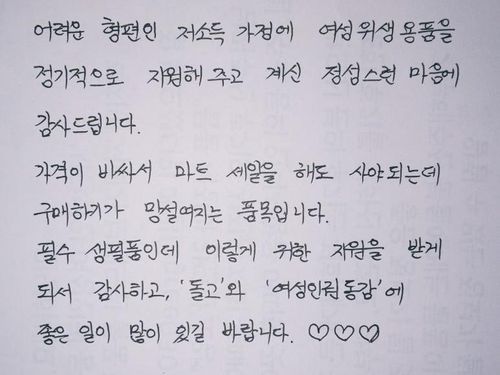 어려운 형편인 저소득 가정에 여성 위생 용품을
정기적으로 지원해 주고 계신 정성스런 마음에
감사드립니다.
가격이 비싸서 마트 세일을 해도 사야되는데
구매하기가 망설여지는 품목입니다.
필수 생필품인데 이렇게 귀한 지원을 받게
되서 감사하고, '돌고'와 '여성인권동감'에
좋은 일이 많이 있길 바랍니다. ♡♡♡